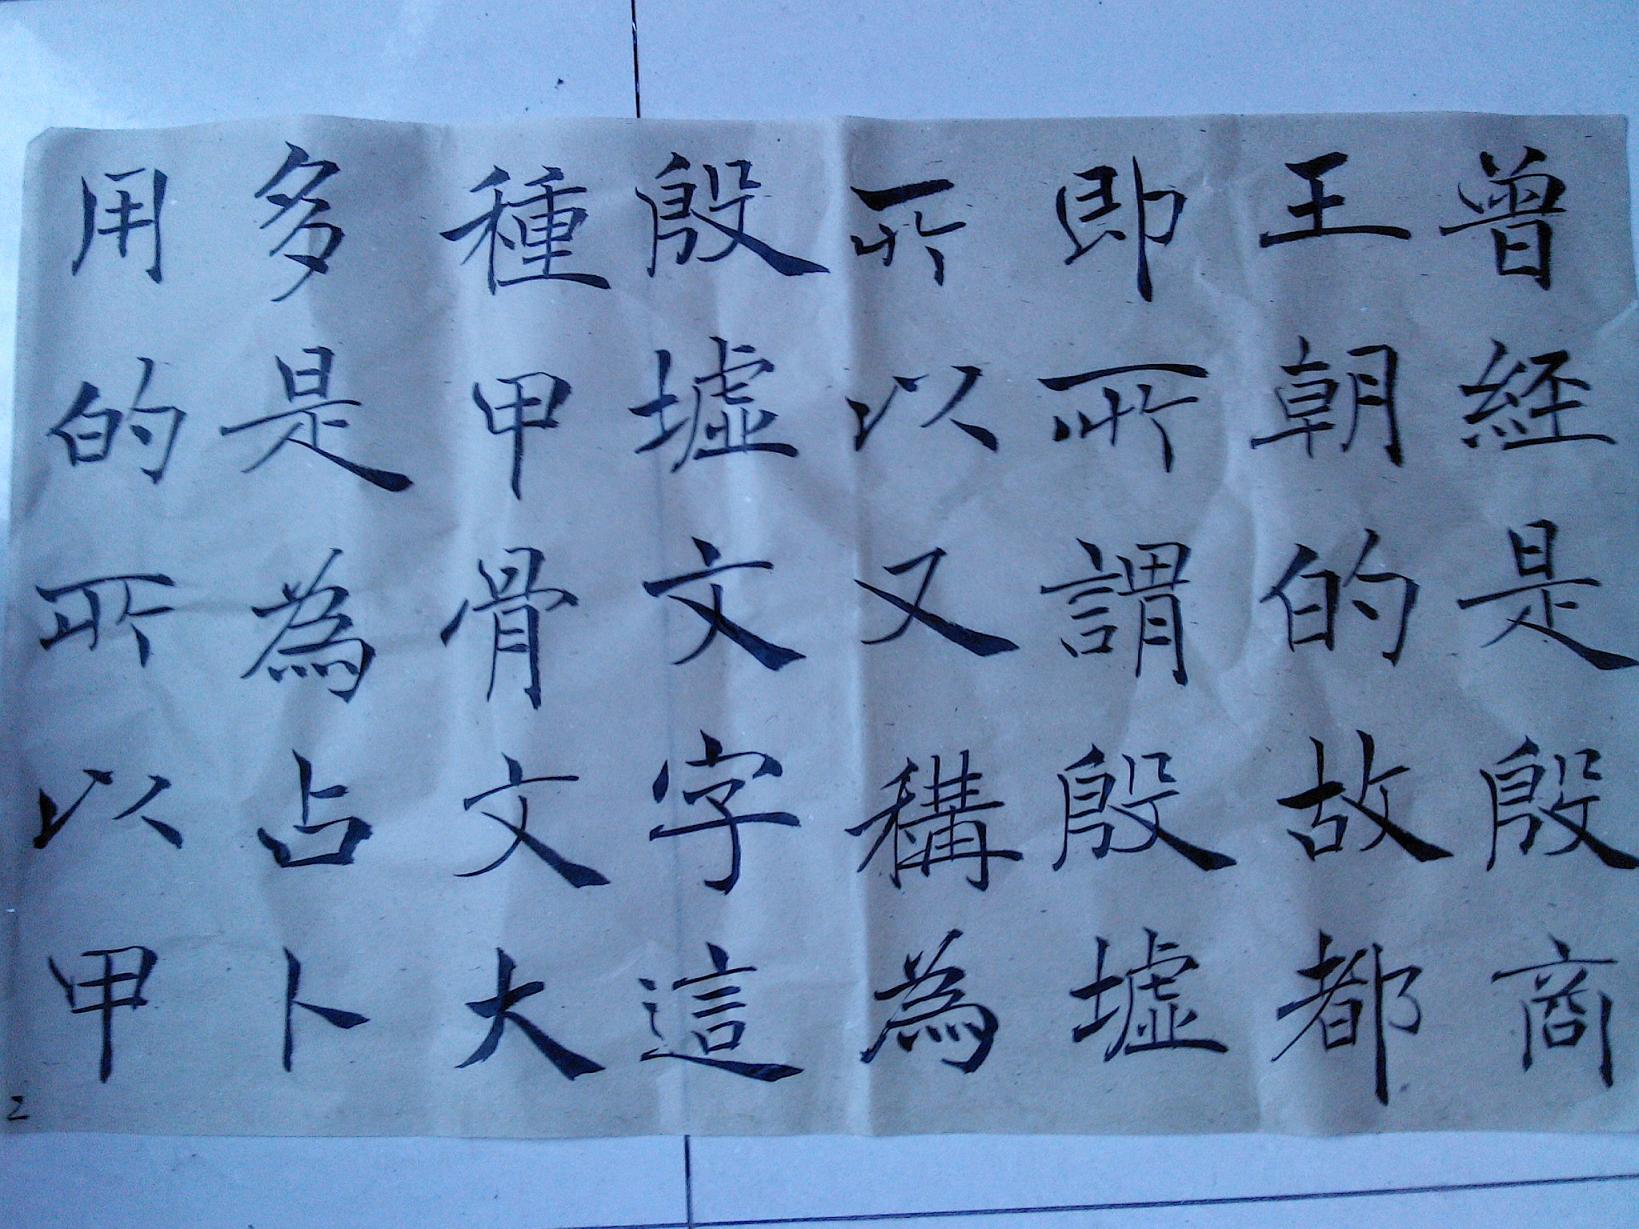 曾經是殷商
王朝的故都
即所謂殷墟
所以又稱為
殷墟文字這
種甲骨文大
多是為占卜
用的所以甲
2